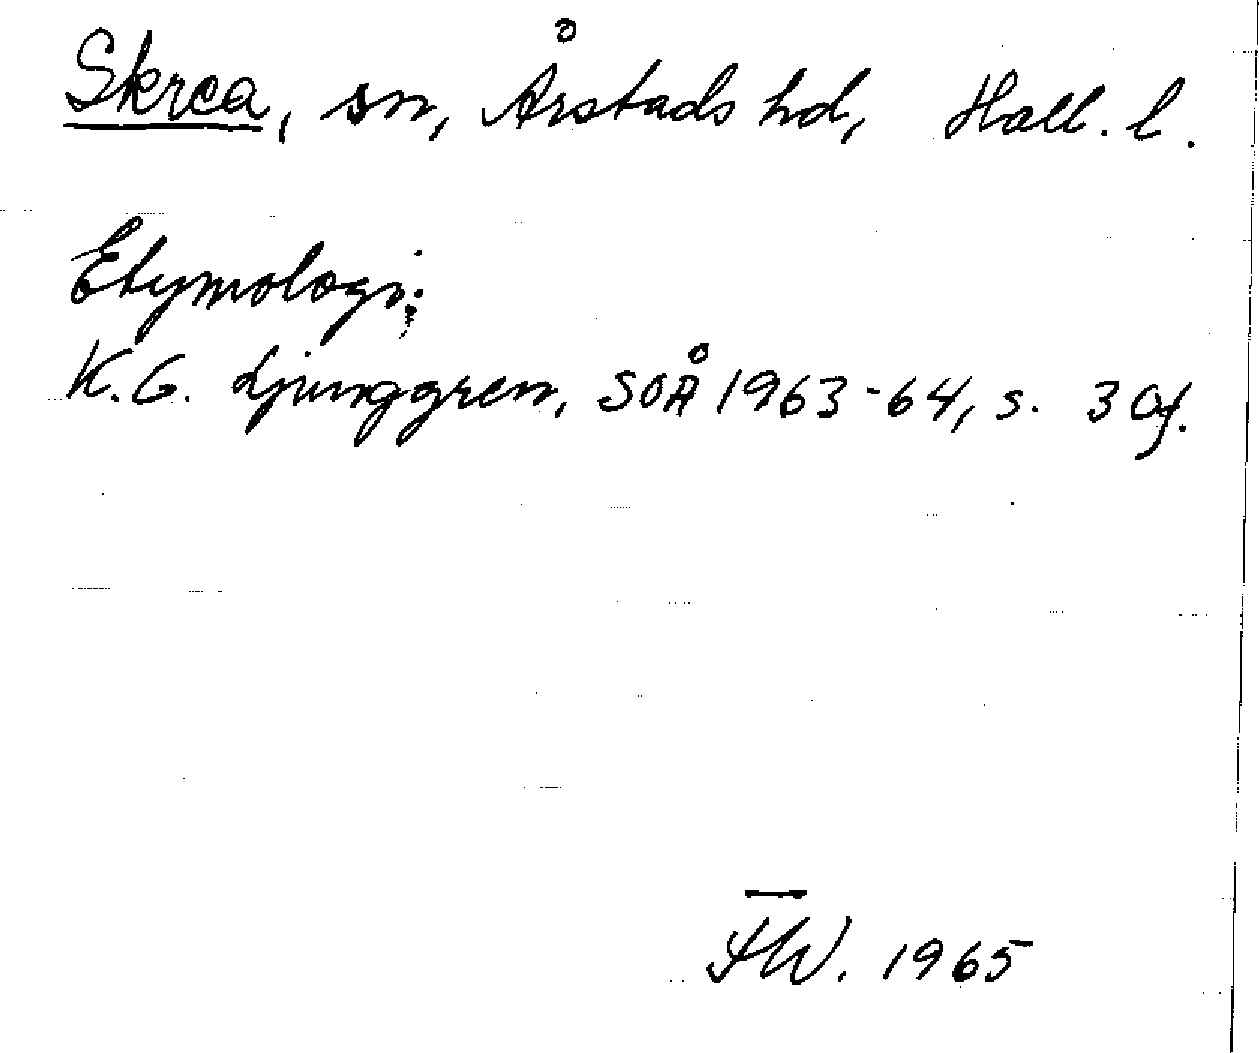 Skrea, sn, Årstads hd, Hall. l.
Etymologi:
K.G. Ljunggren, SOÅ 1963-64, s. 30f.
1965